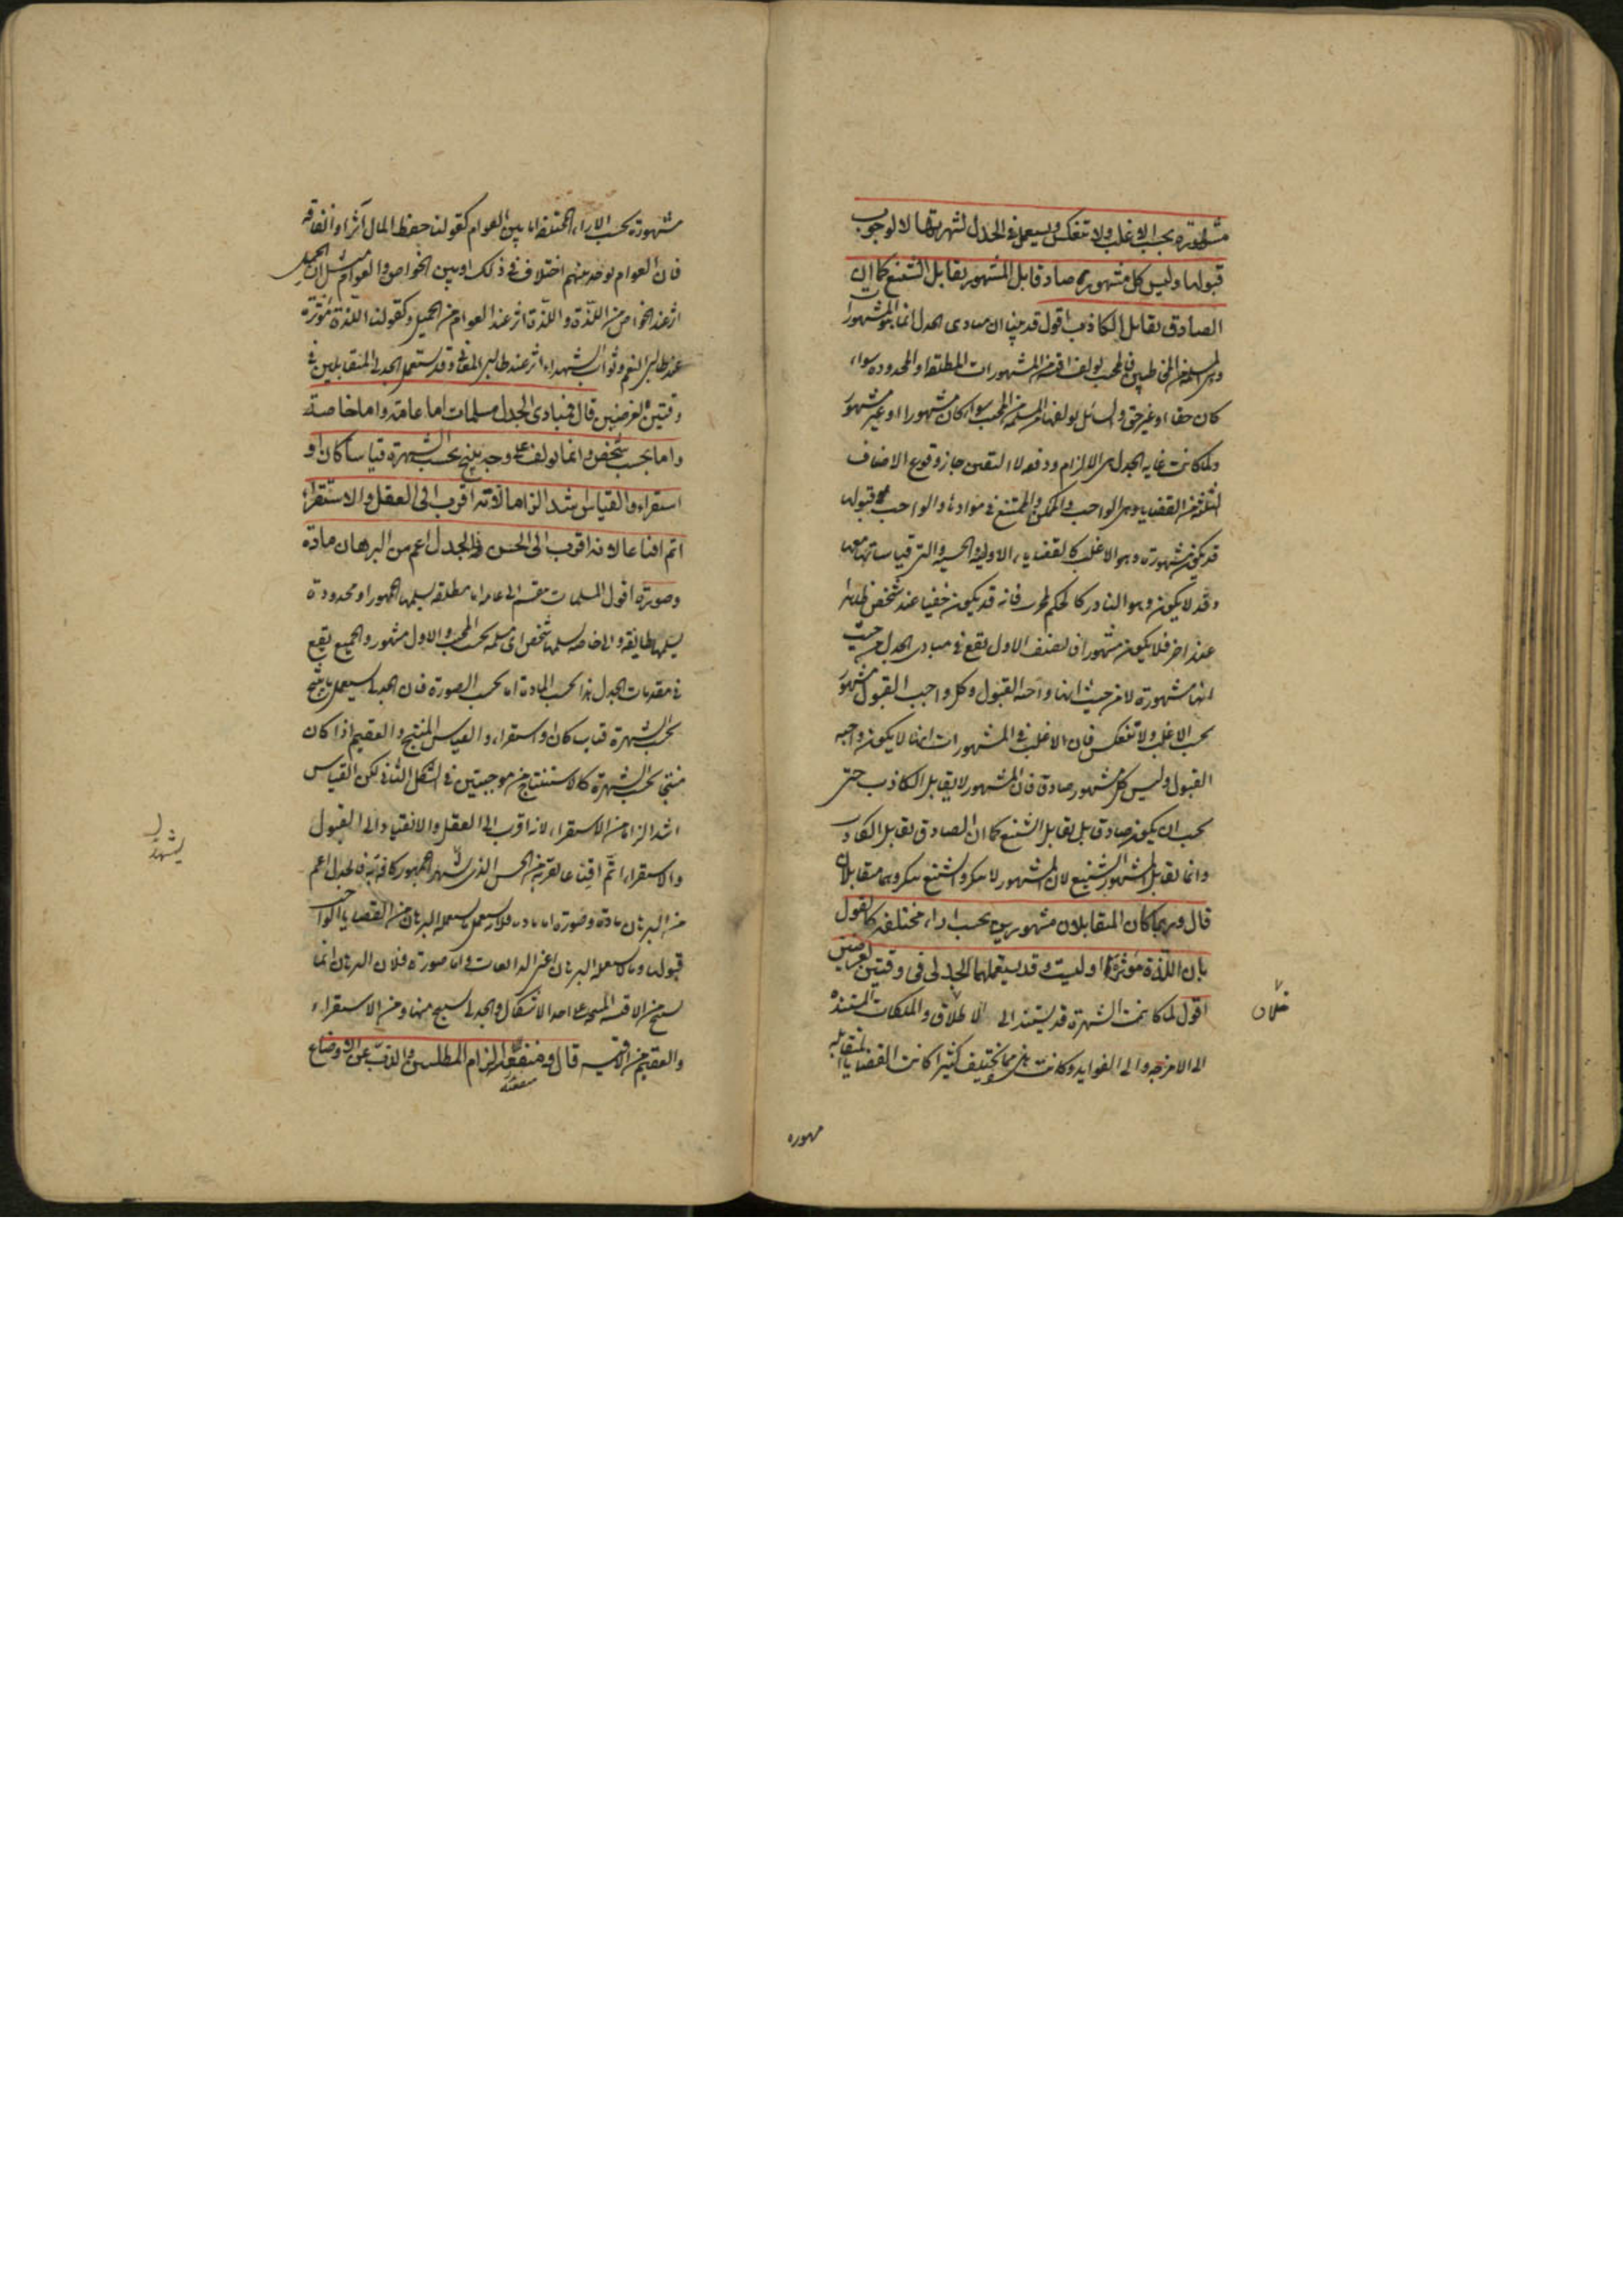 مشهورة بحسب الاغلب ولا تنعكس ويستعمل في الجدل لشهرتها لا لوجوب
قبولها وليس كل مشهورة صادقا بل المشهور يقابل الشنع كما ان
الصادق يقابل الكاذب اقول قد بينا ان مبادى الجدل انما هو المشهورات
والمسلمة من المخاطبين فالمجيب يولف اقيسة من المشهورات المطلقة او المحدودة سواء
كان حقا او غير حق والسائل يولفها مما يتسلمه من المجيب سواء كان مشهورا او غير مشهور
ولما كانت غاية الجدل هي الالزام ودفعه لا اليقين جاز وقوع الاصناف
الثلثة من القضايا وهي الواجب والممكن والممتنع في مواده والواجب قبوله
قد يكون مشهورة وهو الاغلب كالقضايا الاولية والحسية والتي قياساتها معها
وقد لا يكون وهو النادر كالحكم المجرب فانه قد يكون خفيا عند شخص ظاهرا
عند اخر فلا يكون مشهورا فالصنف الاول يقع في مبادى الجدل من حيث
انها مشهورة لا من حيث انها واجبة القبول وكل واجب القبول مشهور
بحسب الاغلب ولا تنعكس فان الاغلب في المشهورات انها لا يكون واجبة
القبول وليس كل مشهور صادقا فان المشهور لا يقابل الكاذب حتى
يجب ان يكون صادقا بل يقابل الشنع كما ان الصادق يقابل الكاذب
وانما يقابل المشهور الشنيع لان المشهور لا ينكر والشنع ينكر وهما متقابلان
قال وربما كان المتقابلان مشهورين بحسب اراء مختلفة كالقول
بان اللذة مؤثرة او ليست وقد يستعملهما الجدلى في وقتين لغرضين
اقول لما كانت الشهرة قد يستند الى الاطلاق والملكات المستندة
خلاق
الى الامزجة والى الفوايد وكانت هي مما يختلف كثيرا كانت القضايا المتقابلة
مهورة
مشهورة بحسب الاراء المختلفة اما بين العوام كقولنا حفظ المال آثر او انفاقه
فان العوام يوجد بينهم اختلاف في ذلك او بين الخواص والعوام مثل ان الجميل
اثر عند الخواص من اللذة واللذة اثر عند العوام من الجميل وكقولنا اللذة مؤثرة
عند طالبي النعم وثواب الشهداء اثر عند طالبي المعالى وقد يستعمل الجدلى المتقابلين في
وقتين لغرضين قال فمبادى الجدل مسلمات اما عامة واما خاصة
واما بحسب شخص وانما يولف على وجه ينتج بحسب الشهرة قياسا كان او
استقراء والقياس اشد الزاما لانه اقرب الى العقل والاستقراء
اتم اقناعا لانه اقرب الى الحس فالجدل اعم من البرهان مادة
وصورة اقول المسلمات منقسم الى عامة اما مطلقة يسلمها الجمهور او محدودة
يسلمها طائفة والى خاصة يسلمها شخص اى مسلمة بحسب المجيب والاول مشهور والجميع يقع
في مقدمات الجدل هذا بحسب المادة اما بحسب الصورة فان الجدلى يستعمل ما ينتج
بحسب الشهرة قياسا كان او استقراء والقياس المنتج والعقيم اذا كان
منتجا بحسب الشهرة كالاستنتاج من موجبتين في الشكل الثانى لكن القياس
اشد الزاما من الاستقراء لانه اقرب الى العقل والانقياد الى القبول
والاستقراء اتم اقناعا لقربه من الحس الذى يشهد الجمهور كافة به فالجدل اعم
يشهد
من البرهان مادة وصورة اما مادة فلانه يستعمل ما يستعمله البرهان من القضايا الواجب
قبولها وما لا يستعمله البرهان اعنى الذائعات واما صورة فلان البرهان انما
ينتج من الاقيسة المنتجة على احد الاشكال والجدلى ينتج منها ومن الاستقراء
والعقيم من الاقيسة قال ومنفعته الزام المبطلين والذب عن الاوضاع
منفعته